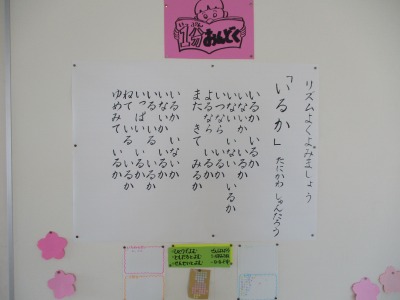 おんどく
リズムよくよみましょう
「いるか」 たにかわ しゅんたろう
いるか いるか
いないか いるか
いない いない いるか
いつなら いるか
よるなら いるか
また きて みるか
いるか いないか
いないか いるか
いる いる いるか
いっぱい いるか
ねて いる いるか
ゆめみて いるか